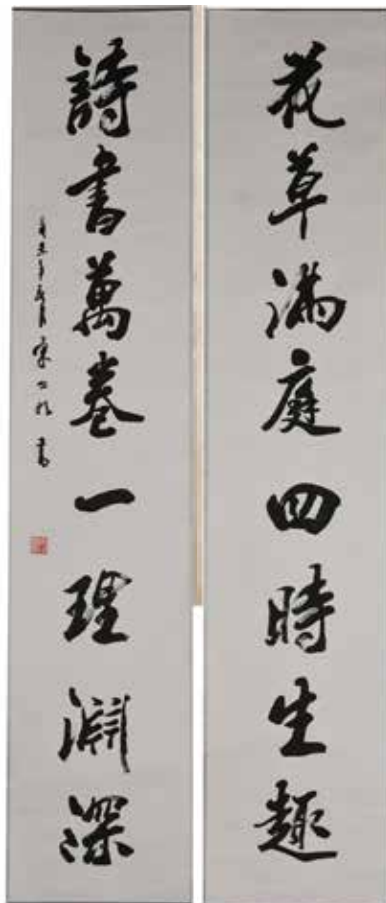 花草滿庭四時生趣
詩書萬卷一理淵深